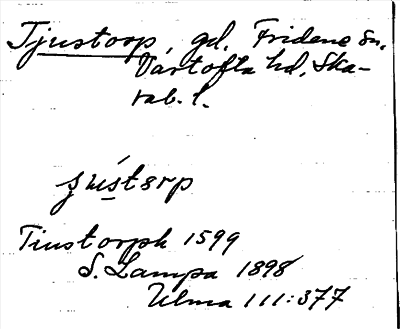 Tjustorp, gd, Fridene sn,
Vartofta hd, Ska-
rab. l.
Tiustorph 1599
S. Lampa 1898
Ulma 111:377